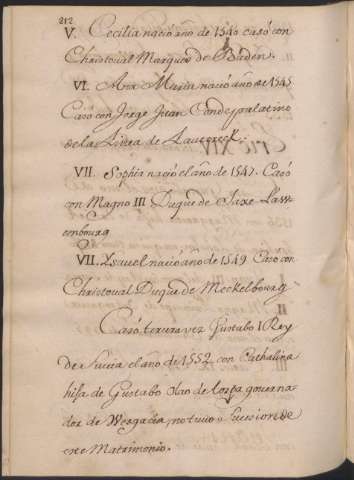 212
V. Cecilia nacio año de 1540 casó con
Christoual Marques de Baden.
VI. Ana Maria nació año de 1545
Casó con Jorge Juan Conde palatino
de la Linea de Lautereck.
VII. Sophia nació el año de 1547. Casó
con Magno III Duque de Saxe Laww
embourg
VII. Ysauel nacio año de 1549 Caso con
Christoual Duque de Meckelbourg
Casó tercera vez Gustabo I Rey
de Suecia el año de 1552 con Cathalina
hija de Gustabo Olao de governa
dor de Wesgocia, no tuuo Sucesion de
este Matrimonio.